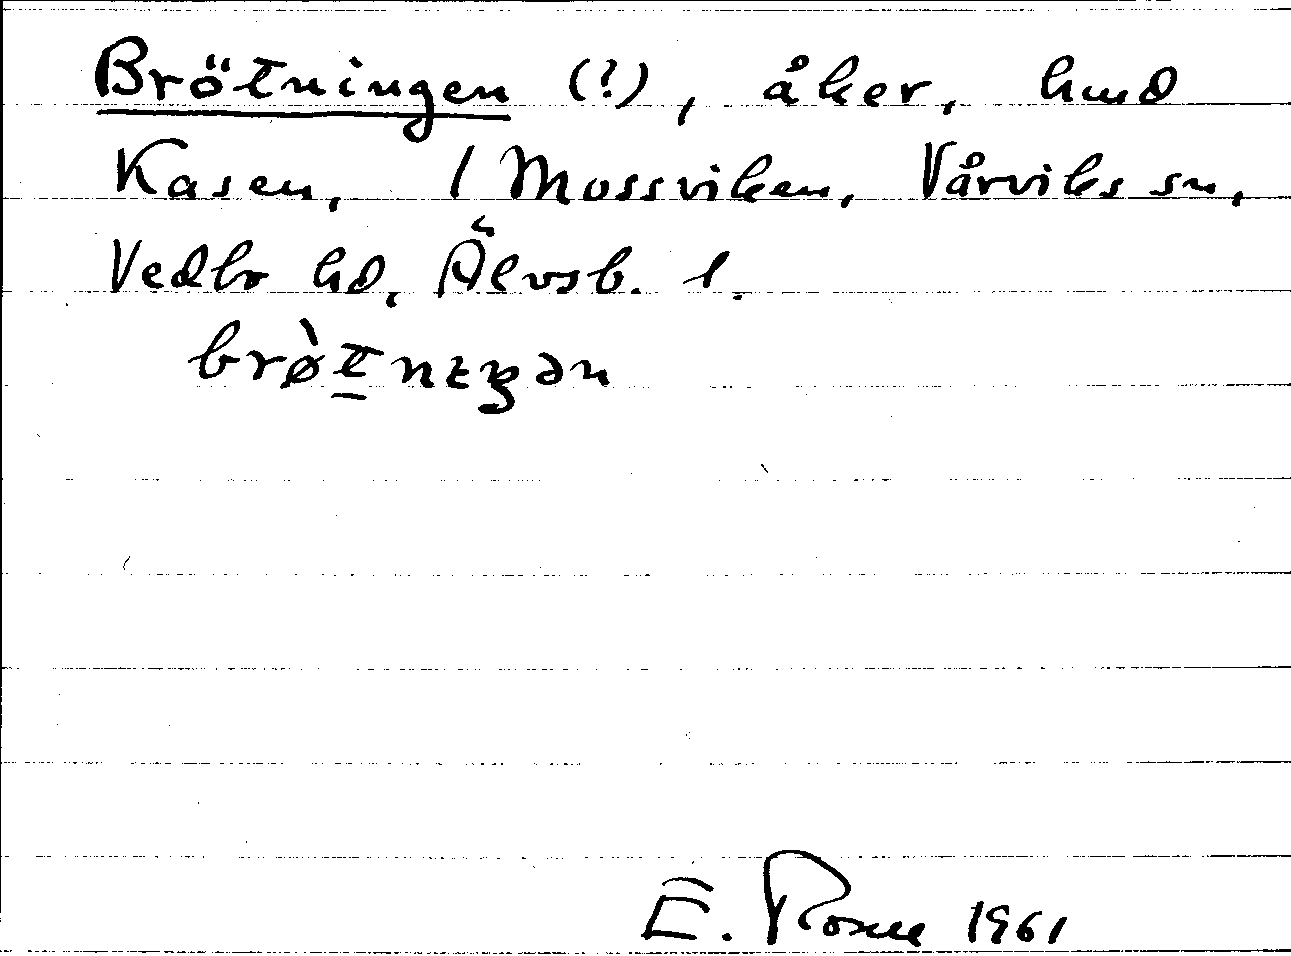 Brötningen (?), åker, hmd
Kasen, 1 Mossviken, Vårviks sn,
Vedbo hd, Älvsb. l.
brø̀t̠nɩŋən
E. Rosell 1961